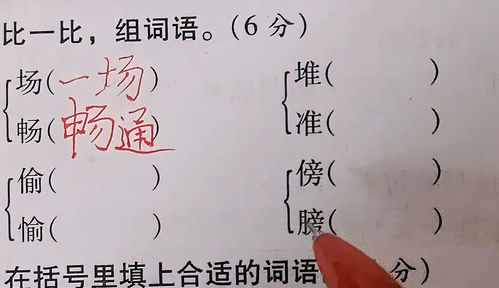 比一比，组词语。(6分)
场(一场) 堆( )
畅(畅通) 准( )
偷( ) 傍( )
愉( ) 膀( )
在括号里填上合适的词语( 分)